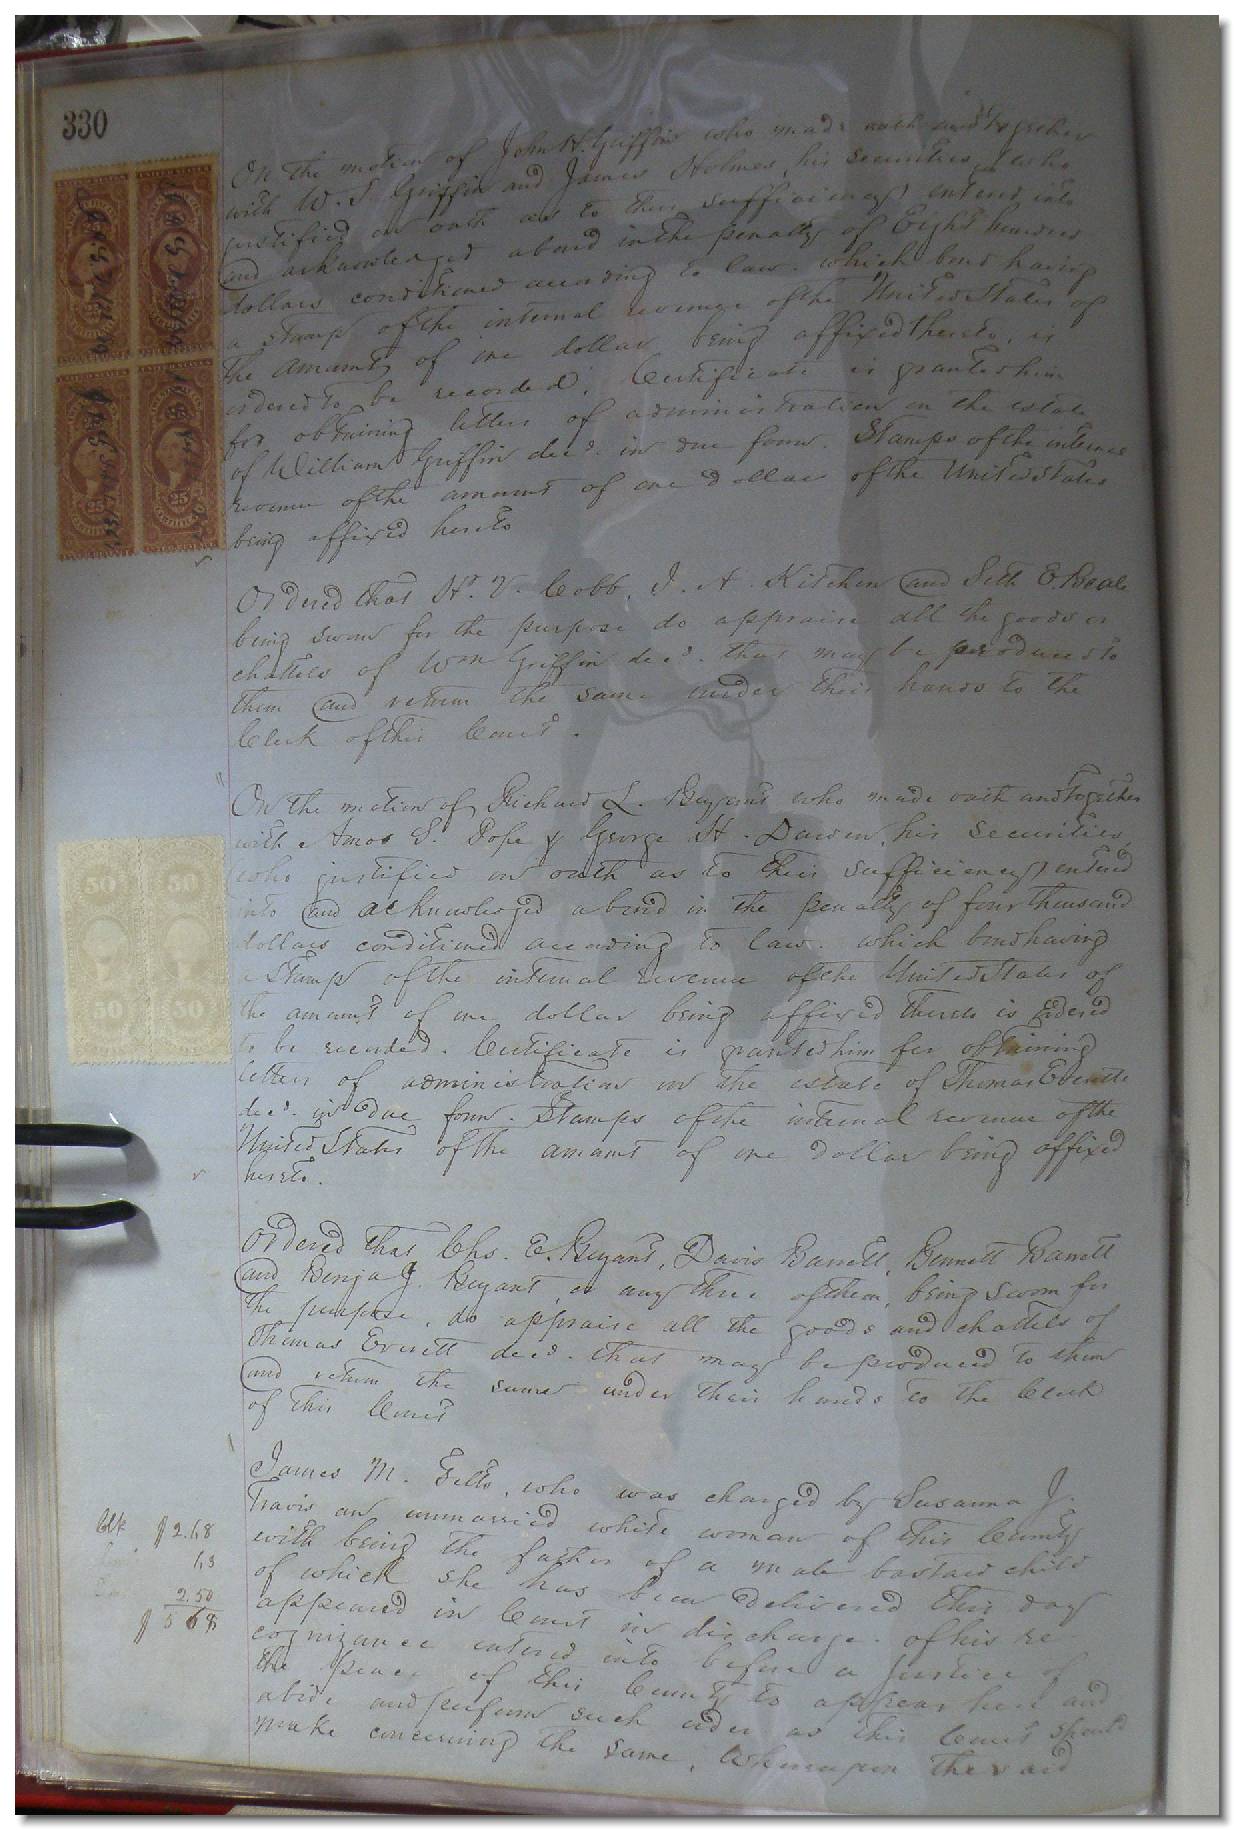 330
On the motion of John H. Griffin who made oath and together
with W. S. Griffin and James Holmes, his securities, (who
justified on oath as to their sufficiency) entered into
and acknowledged a bond in the penalty of Eight hundred
dollars conditioned according to law. which bond having
a stamp of the internal revenue of the United States of
the amount of one dollar being affixed thereto, is
ordered to be recorded. Certificate is granted him
for obtaining letters of administration on the estate
of William Griffin decd. in due form. Stamps of the internal
revenue of the amount of one dollar of the United States
being affixed hereto
25
25
Ordered that H. V. Cobb, J. A. Kitchen and Seth E. Beale
being sworn for the purpose do appraise all the goods or
chattels of Wm Griffin decd. that may be produced to
them and return the same under their hands to the
Clerk of this Court.
On the motion of Richard L. Bryant who made oath and together
with Amos S. Pope & George H. Darden, his securities,
(who justified on oath as to their sufficiency) entered
into and acknowledged a bond in the penalty of four thousand
dollars conditioned according to law. which bond having
a Stamp of the internal revenue of the United States of
the amount of one dollar being affixed thereto is ordered
to be recorded. Certificate is granted him for obtaining
letters of administration on the estate of Thomas Everett
decd. in due form. Stamps of the internal revenue of the
United States of the amount of one dollar being affixed
hereto.
50 50
50 50
Ordered that Chs. E. Bryant, Davis Barrett, Bennett Barrett
and Benja J. Bryant, or any three of them, being sworn for
the purpose, do appraise all the goods and chattels of
Thomas Everett decd. that may be produced to them
and return the same under their hands to the Clerk
of this Court
James M. Felts, who was charged by Susanna J.
Travis an unmarried white woman of this County
with being the father of a male bastard child
of which she has been delivered this day
appeared in Court in discharge of his re-
cognizance entered into before a Justice of
the peace of this County to appear here and
abide and perform such order as this Court should
make concerning the same, Whereupon the said
Clk $2.68
2.50
$ 5 68